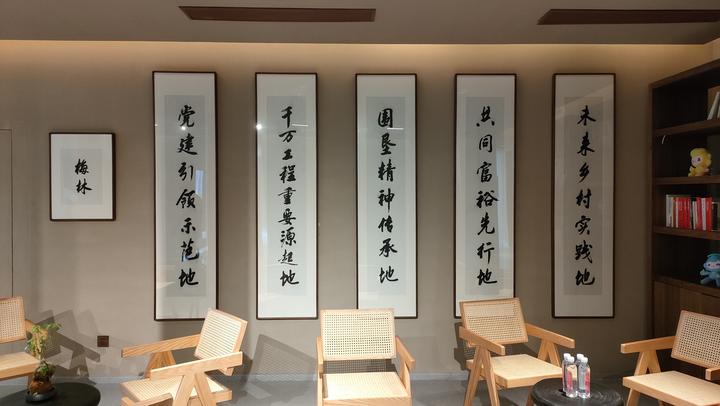 梅林
党建引领示范地
千万工程重要源起地
围垦精神传承地
共同富裕先行地
未来乡村实践地